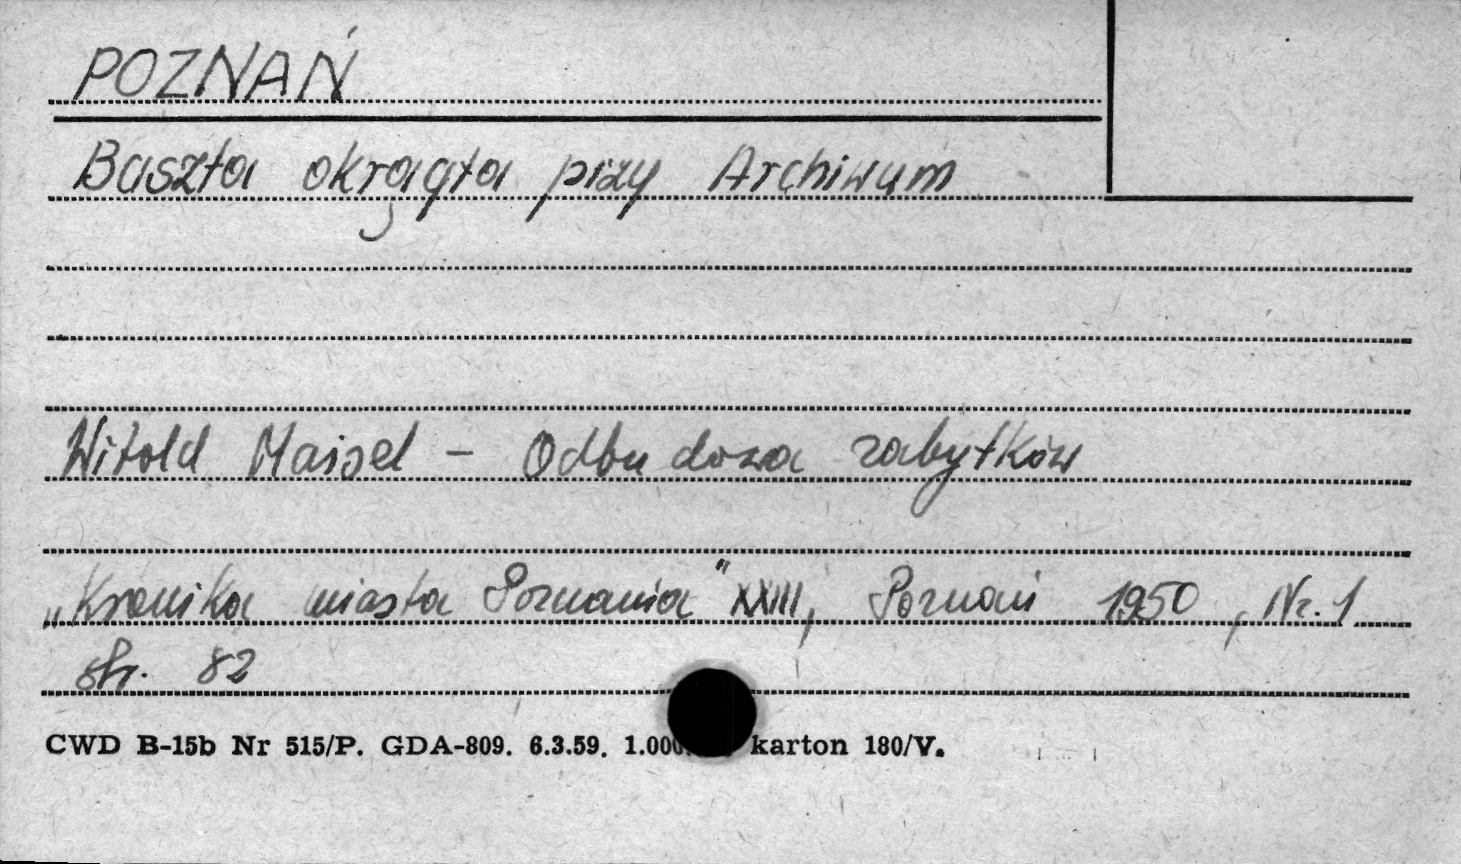 POZNAŃ
Baszta okrągła przy Archiwum
Witold Maisel - Odbudowa zabytków
„Kronika miasta Poznania" XXIII, Poznań 1950, Nr. 1
str. 82
CWD B-15b Nr 515/P. GDA-809. 6.3.59. karton 180/V.